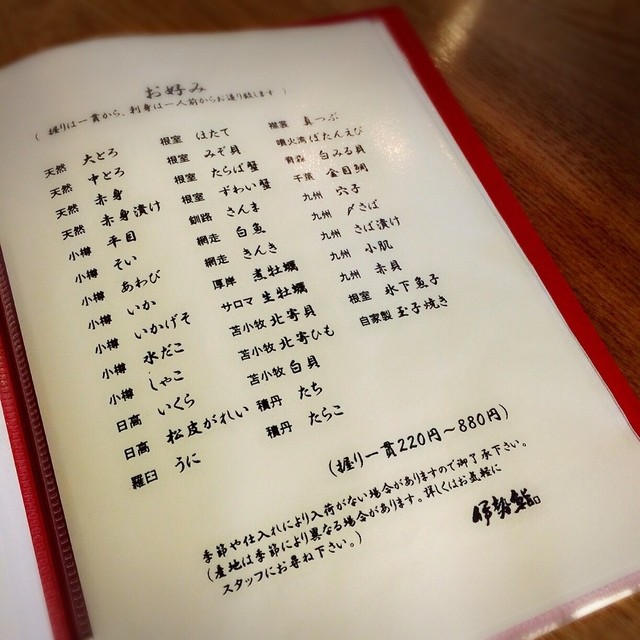 お好み
(握りは一貫から、刺身は一人前からお造り致します)
天然 大とろ
天然 中とろ
天然 赤身
天然 赤身漬け
小樽 平目
小樽 そい
小樽 あわび
小樽 いか
小樽 いかげそ
小樽 水だこ
小樽 しゃこ
日高 いくら
日高 松皮がれい
羅臼 うに
根室 ほたて
根室 みぞ貝
根室 たらば蟹
根室 ずわい蟹
釧路 さんま
網走 白魚
網走 きんき
厚岸 煮牡蠣
サロマ 生牡蠣
苫小牧 北寄貝
苫小牧 北寄ひも
苫小牧 白貝
積丹 たち
積丹 たらこ
根室 真つぶ
噴火湾 ぼたんえび
青森 白みる貝
千葉 金目鯛
九州 穴子
九州 〆さば
九州 さば漬け
九州 小肌
九州 赤貝
根室 氷下魚子
自家製 玉子焼き
(握り一貫220円～880円)
季節や仕入れにより入荷がない場合がありますので御了承下さい。
(産地は季節により異なる場合があります。詳しくはお気軽に
スタッフにお尋ね下さい。)
伊勢鮨